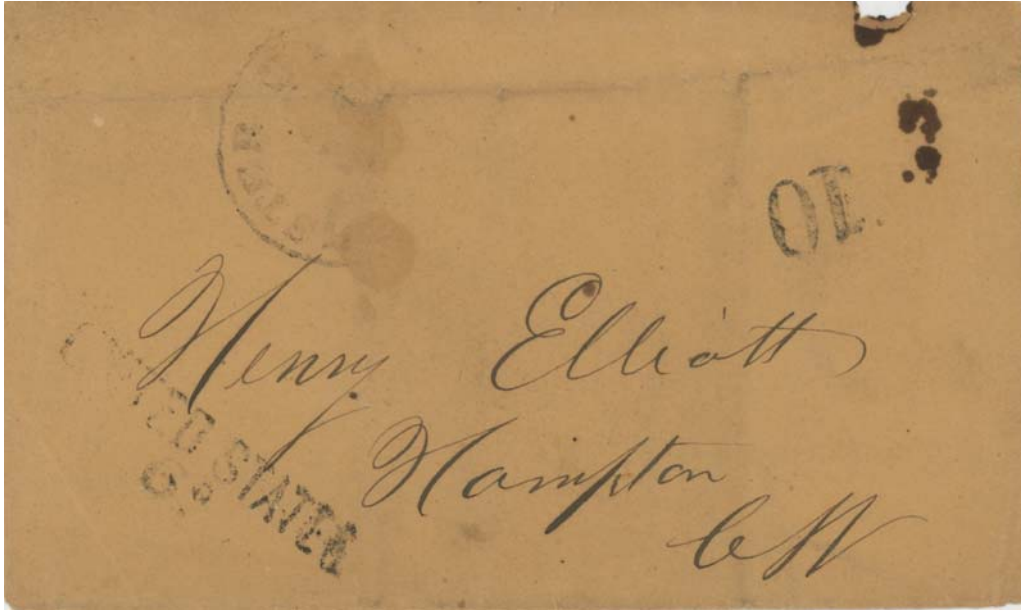 10
Henry Elliott
Hampton
CW
UNITED STATES
6d